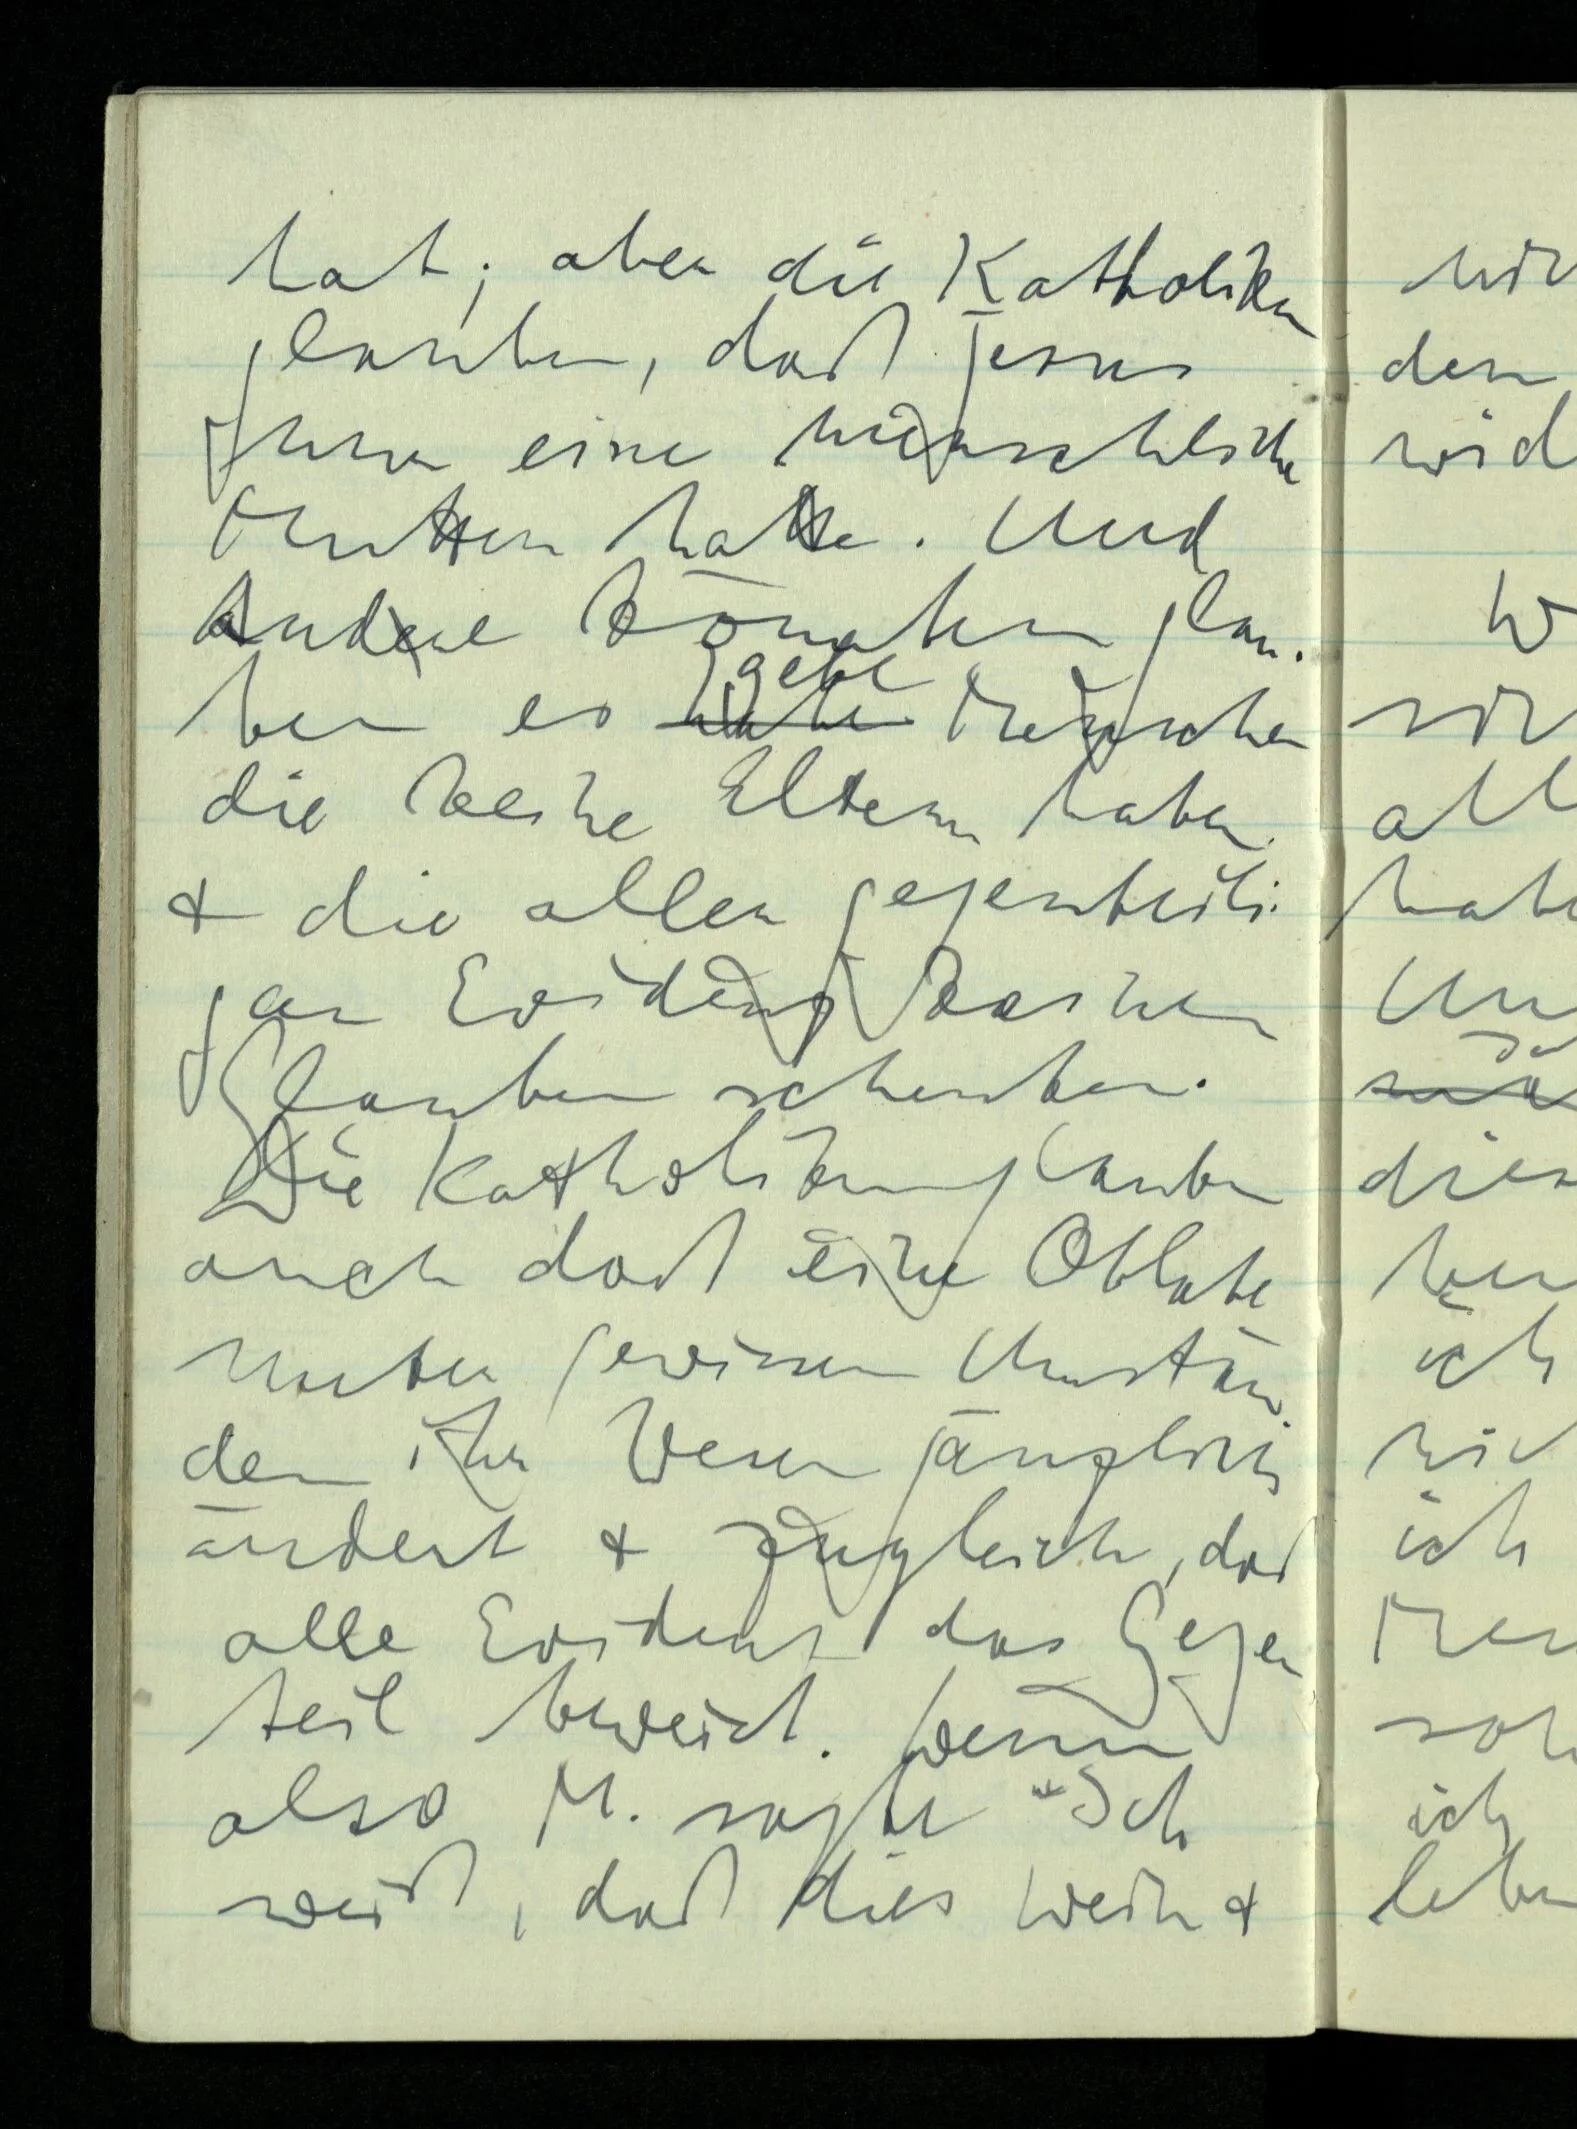 hat; aber die Katholiken
glauben, daß Jesus
nur eine menschliche
Mutter hatte. Und
Andere könnten glau-
ben es gebe Menschen
die keine Eltern haben
& die aller gegenteili-
gen Evidenz keinen
Glauben schenken.
Die Katholiken glauben
auch daß eine Oblate
unter gewissen Umstän-
den ihr Wesen gänzlich
ändert & zugleich, daß
alle Evidenz das Gegen
teil beweist. Wenn
also M. sagte "Ich
weiß, daß dies Wein &